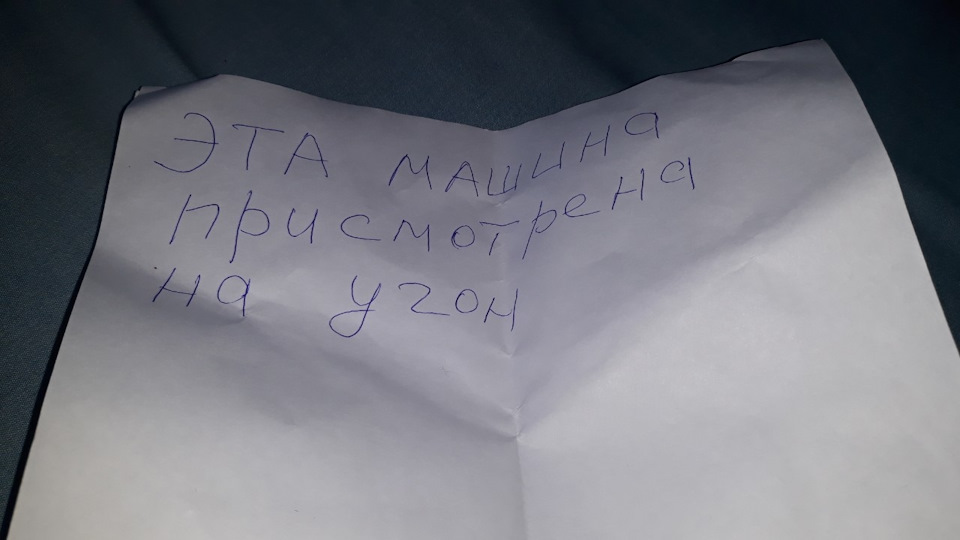 ЭТА МАШИНА
ПРИСМОТРЕНА
НА УГОН